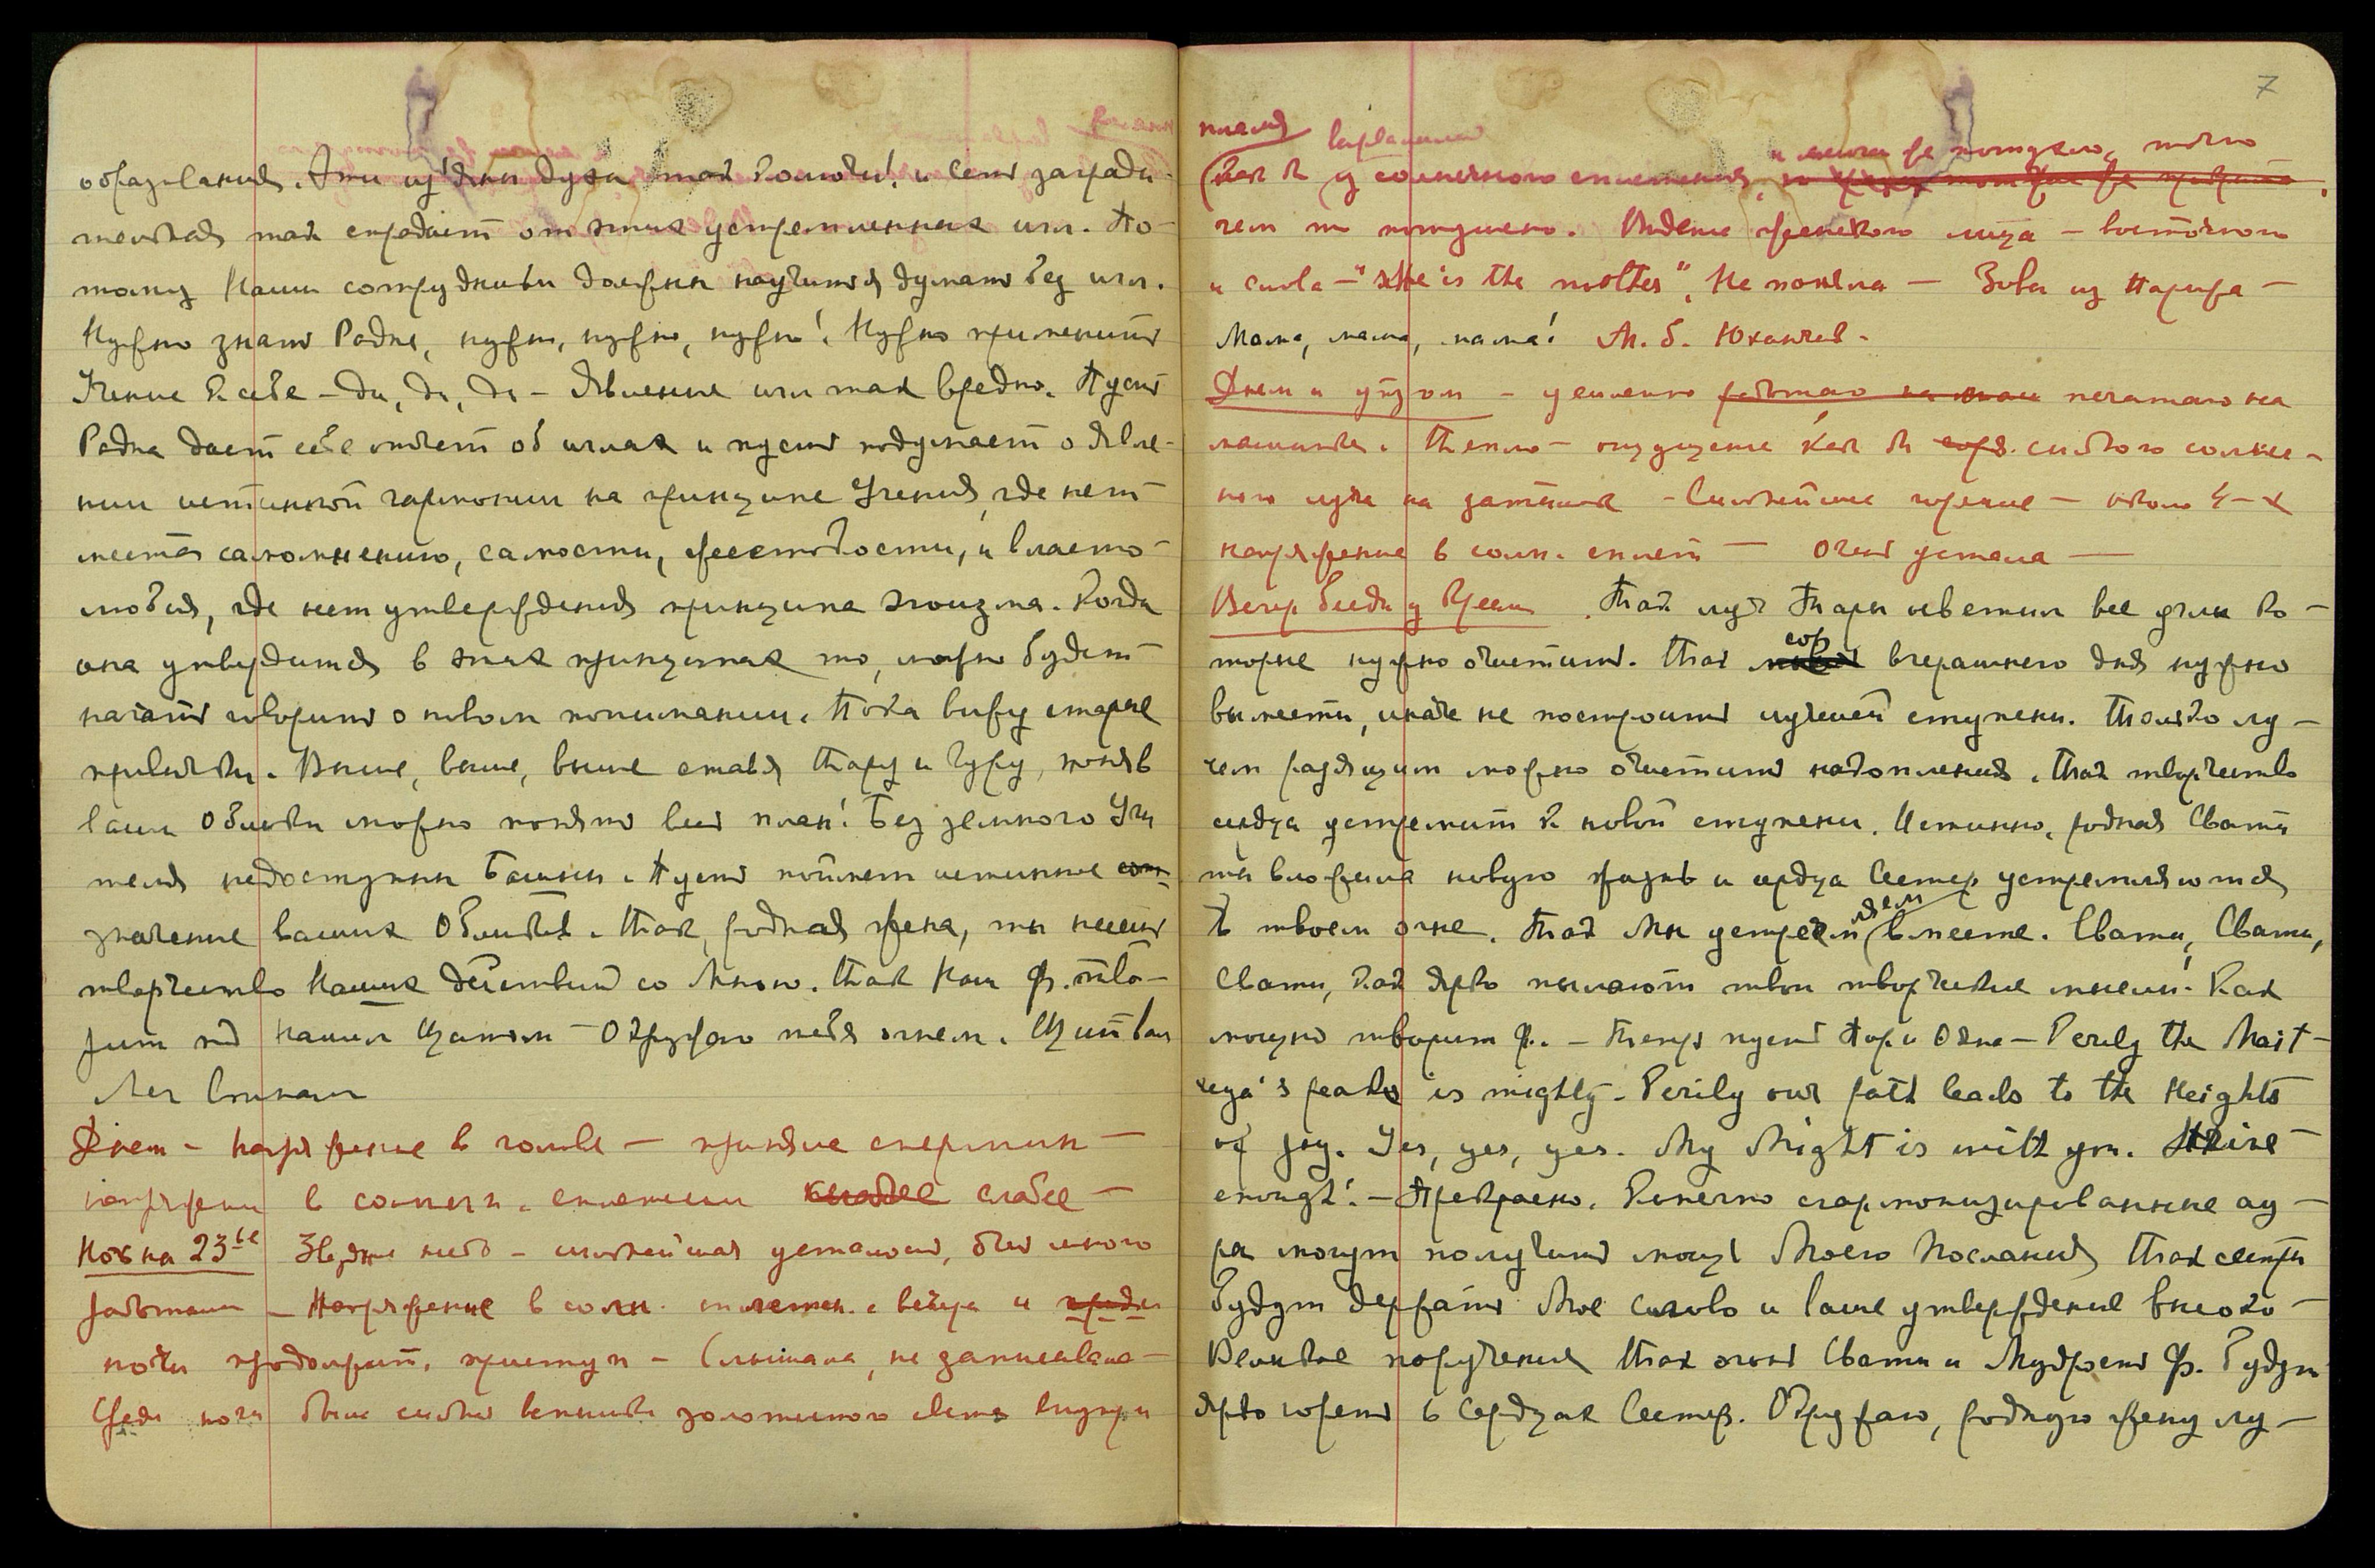 образования. Эти изъяны духа так колючи! и Сент загради-
тельная так страдает от этих устремленных игл. По-
тому Наши сотрудники должны научиться думать без игл.
Нужно знать Радне, нужно, нужно, нужно! Нужно применить
Учение к себе – да, да, да – Явление игл так вредно. Пусть
Радна дает себе отчет об иглах и пусть подумает о явле-
нии истинной гармонии на принципе Учения, где нет
места самомнению, самости, жестокости, и власто-
любия, где нет утверждения принципа эгоизма. Когда
она утвердится в этих принципах то, можно будет
начать говорить о новом понимании. Пока вижу старые
привычки. Выше, выше, выше ставя Тару и Гуру, поняв
ваши Облики можно понять весь план! Без земного Учи
теля недоступны Башни. Пусть поймет истинное
значение ваших Обликов. Так, родная жена, ты несешь
творчество Наших действий со Мною. Так Наш Ф. тво-
рит под Нашим Щитом – Окружаю тебя огнем. Щит вам
Меч вручаю
Днем – напряжение в голове – приняла спермин –
напряжение в солнечн. сплетении слабее –
Ночь на 23ье Звездное небо – сильнейшая усталость, был много
работали – Напряжение в солн. сплетен. с вечера и
ночи продолжит. приступ – Слышала, не записывала –
Среди ночи были сильные вспышки золотистого света внутри
7
пламя
(как бы из солнечного сплетения, и могла же потухло, точно
чем то потушено. Видение женского лица – восточного
и слова – "she is the mother". Не поняла – Зовы из Парижа –
Мама, мама, мама! М. б. Юханчик.
Днем и утром – усиленно работаю печатаю на
машинке. Тепло – ощущение как бы сильного солнеч-
ного луча на затылке – Сильнейшее горение – около 4-х
напряжение в солн. сплет – Очень устала –
Вечер беседы у Креста. Так луч Тары осветил все углы ко-
торые нужно очистить. Так сор вчерашнего дня нужно
вымести, иначе не построить лучшей ступени. Только лу-
чем разящим можно очистить накопления. Так творчество
сердца устремит к новой ступени. Истинно, родная Свати
ты вложила новую жизнь и сердца Сестер устремляются
к твоем огне. Так Мы устремляем вместе. Свати, Свати,
Свати, как ярко пылают твои творческие мысли! Как
мощно творит Ф. – Теперь пусть Пори Окна – Verily the Mait-
reya's peaks is mighty – Verily our path leads to the Heights
of joy. Yes, yes, yes. My Might is with you.
enough! – Прекрасно. Конечно сгармонизированные ау-
ры могут получить мощь Моего Послания Так сестры
будут держать Мое слово и ваше утверждение высоко –
Великие поручения Так огонь Свати и Мудрость Ф. будут
ярко гореть в Сердцах Сестер. Окружаю, родную жену лу-